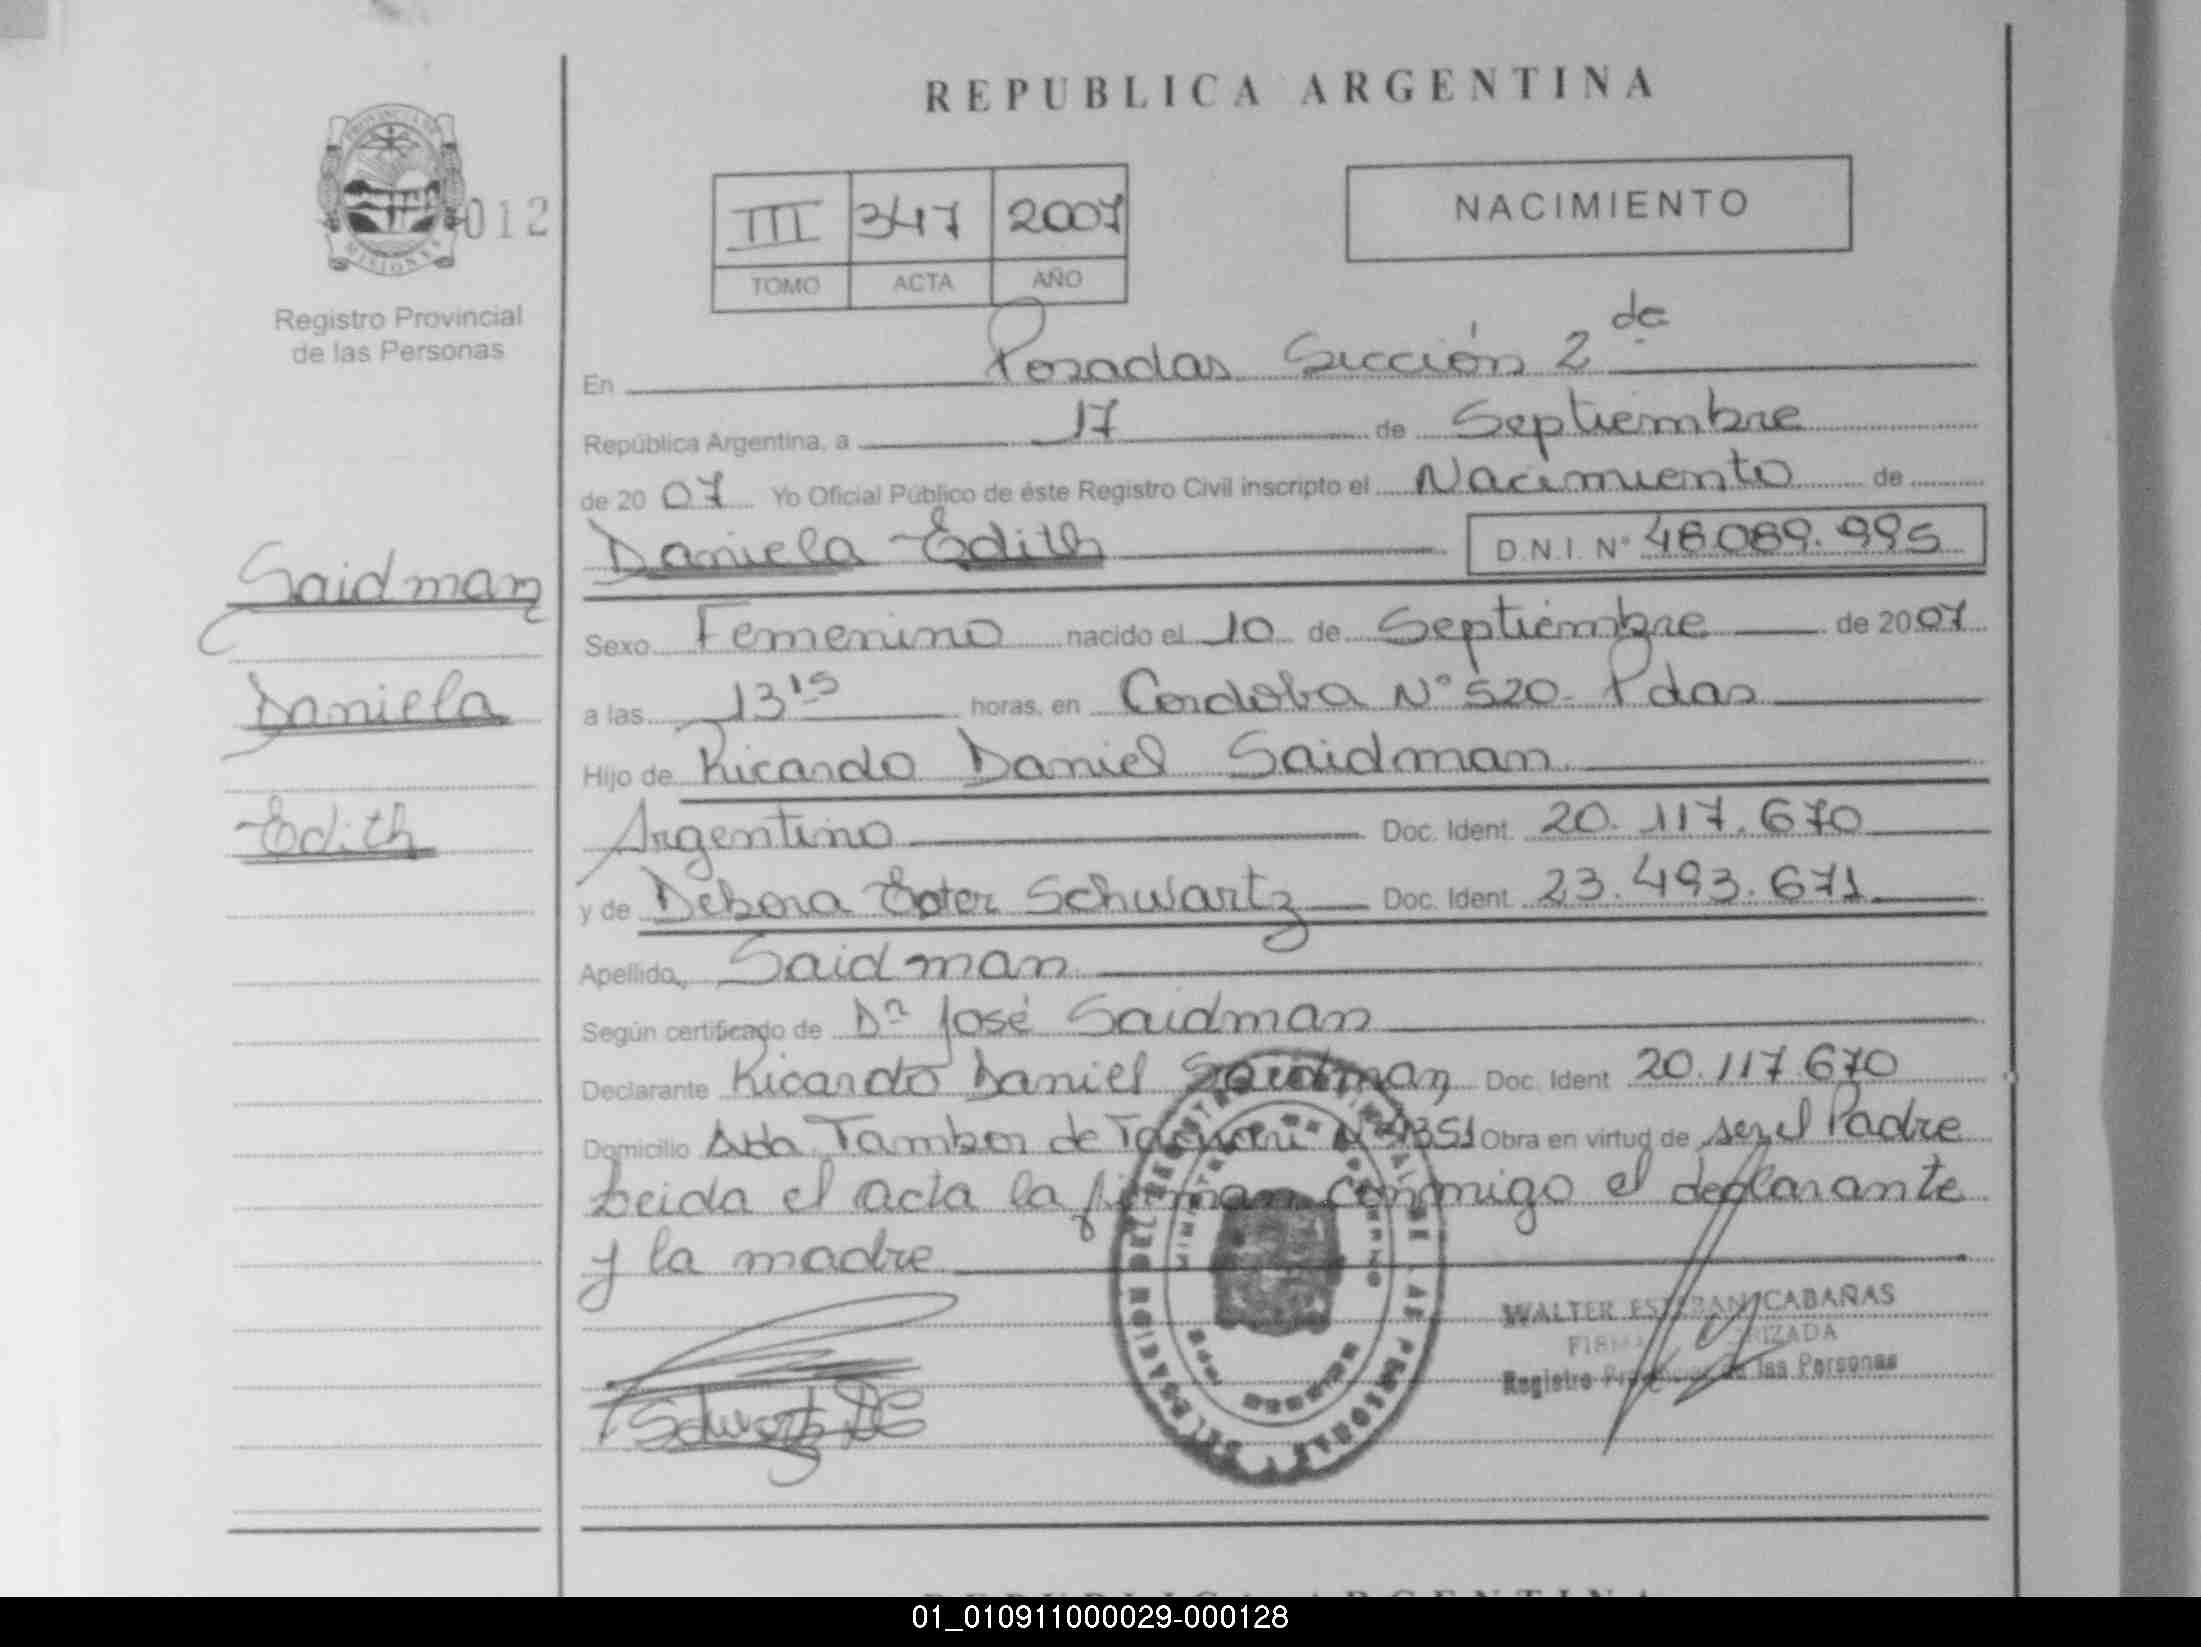 REPUBLICA ARGENTINA
PROVINCIA DE
MISIONES
012
Registro Provincial
de las Personas
III 347 2007
TOMO ACTA AÑO
NACIMIENTO
En Posadas Sección 2 da
República Argentina, a 17 de Septiembre
de 20 07 Yo Oficial Público de éste Registro Civil inscripto el Nacimiento de
Daniela Edith D.N.I. Nº 48.089.995
Saidman
Daniela
Edith
Sexo Femenino nacido el 10 de Septiembre de 2007
a las 13 15 horas, en Cordoba Nº 520- Pdas
Hijo de Ricardo Daniel Saidman
Argentino Doc. Ident. 20.117.670
y de Debora Ester Schwartz Doc. Ident. 23.493.671
Apellido Saidman
Según certificado de Dr José Saidman
Declarante Ricardo Daniel Saidman Doc. Ident 20.117 670
Domicilio Avda Tambor de Tacuari Obra en virtud de ser el Padre
Leida el acta la firman conmigo el declarante
y la madre
WALTER ESTEBAN CABAÑAS
Registro Provincial de las Personas
REPUBLICA ARGENTINA
01_010911000029-000128